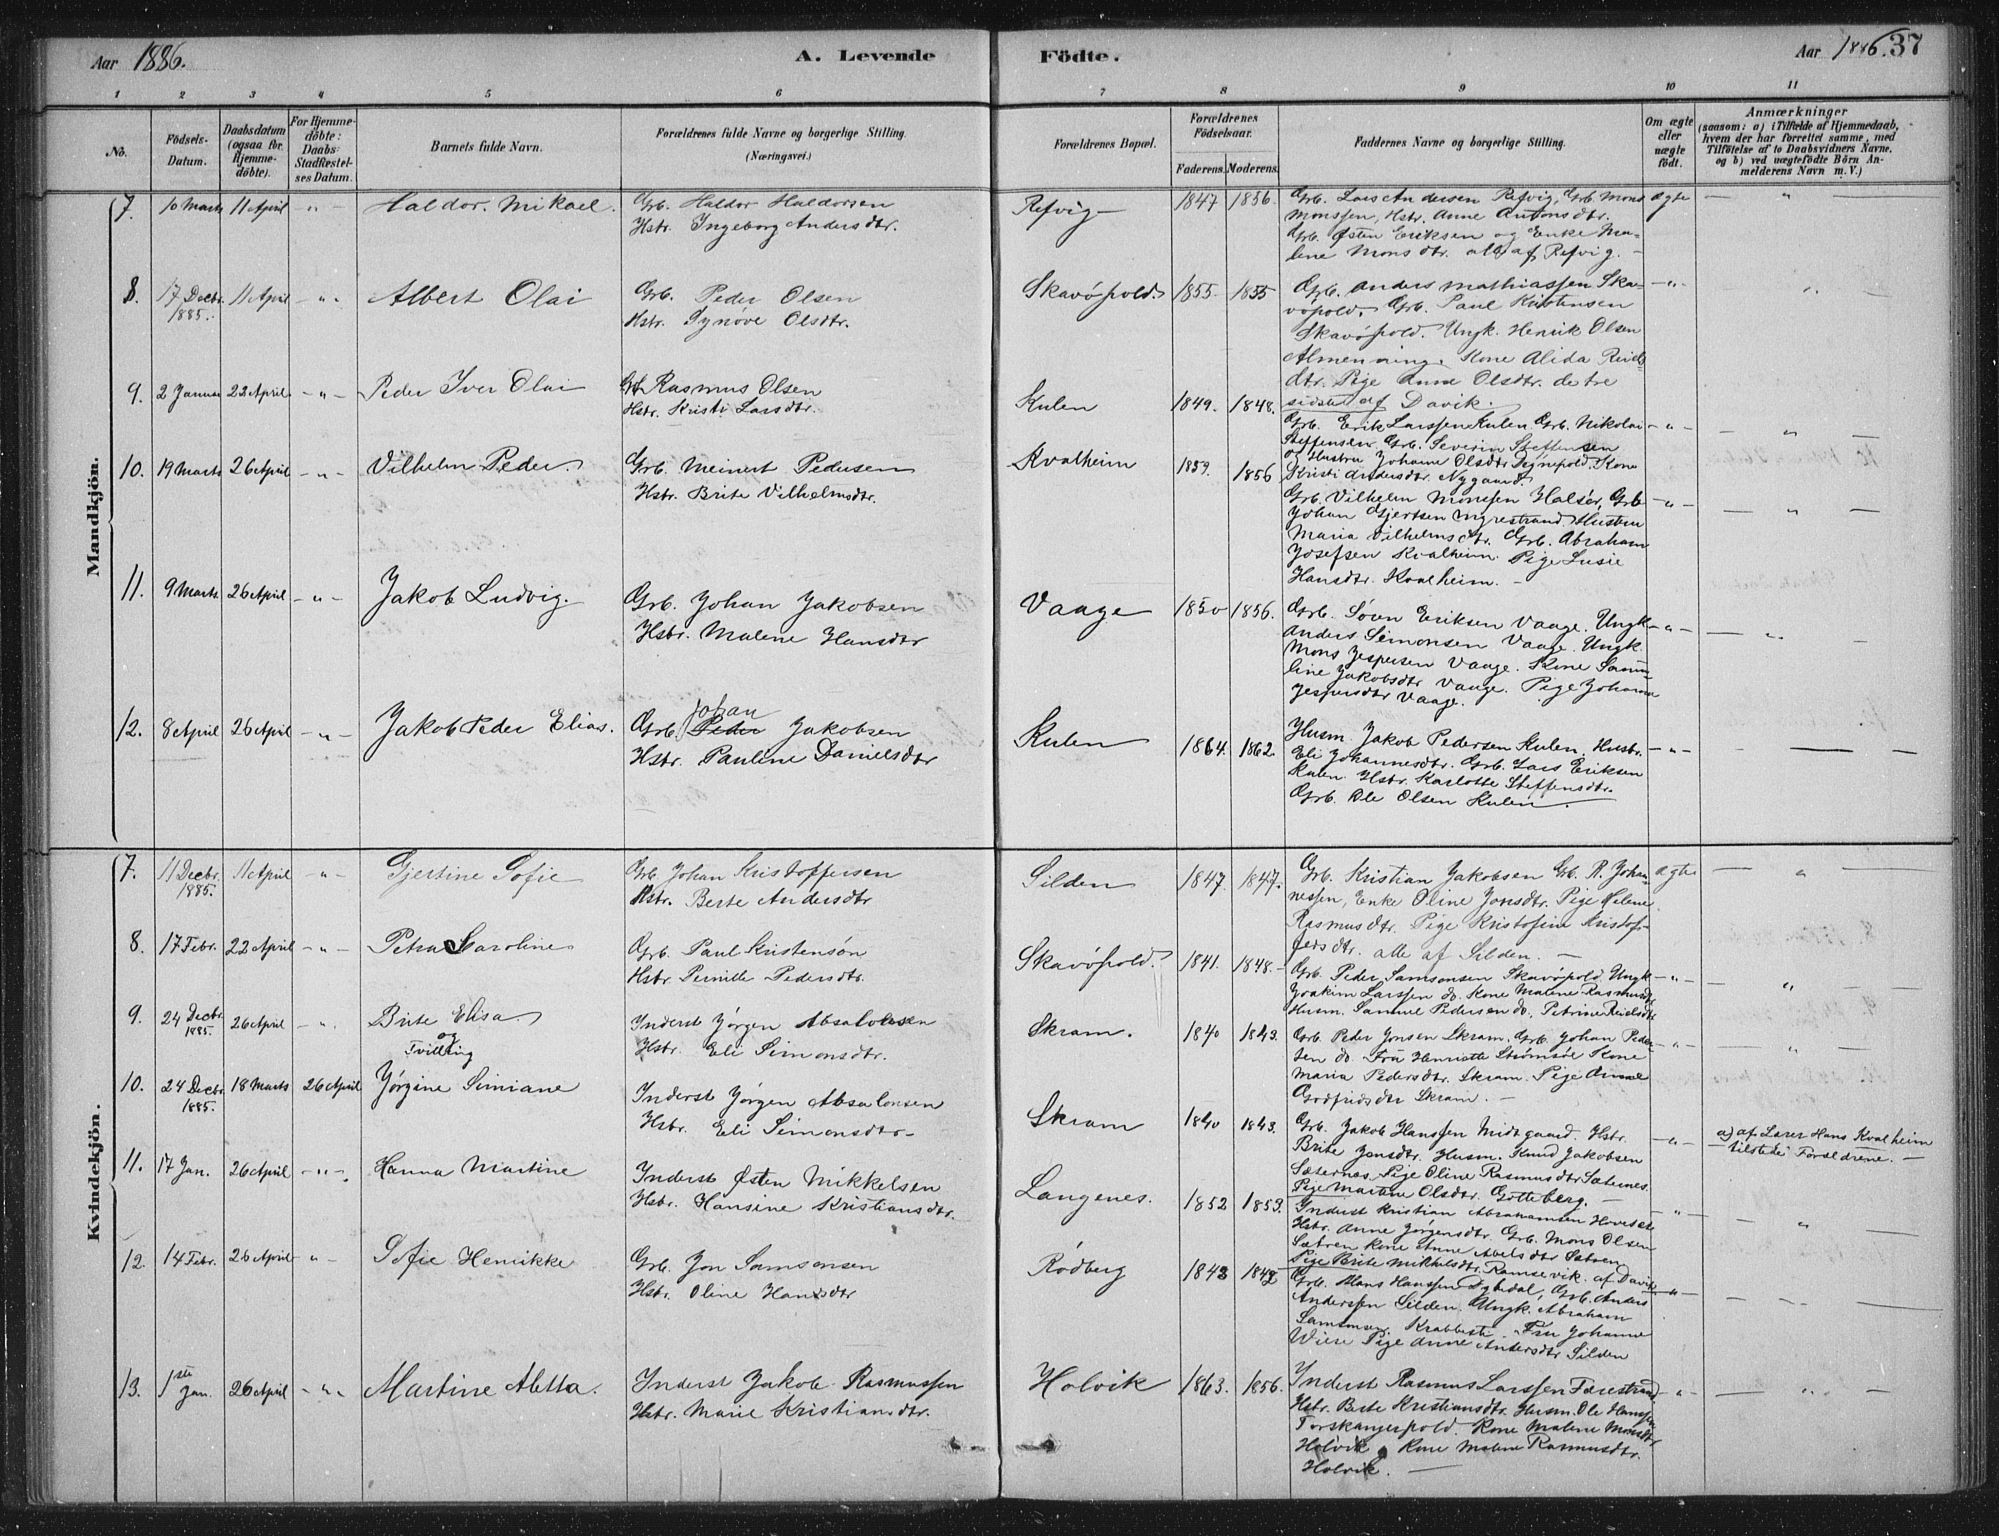 Aar 1886.
A. Levende
Födte.
Aar 1886.
37
1 2 3 4 5 6 7 8 9 10 11
No.
Födsels-
Datum.
Daabsdatum
(ogsaa for
Hjemme-
döbte).
For Hjemme-
döbte:
Daabs-
Stadfæstel-
ses Datum.
Barnets fulde Navn.
Forældrenes fulde Navne og borgerlige Stilling.
(Næringsvei.)
Forældrenes Bopæl.
Forældrenes
Födselsaar.
Faderens. Moderens.
Faddernes Navne og borgerlige Stilling.
Om ægte
eller
uægte
födt.
Anmærkninger
(saasom: a) i Tilfælde af Hjemmedaab,
hvem der har forrettet samme, med
Tilföielse af to Daabsvidners Navne,
og b) ved uægtefödte Börn An-
melderens Navn m. V.)
Mandkjön.
7. 10 Marts 11 April -"- Haldor Mikael.
Grb. Haldor Haldorsen
Hstr. Ingeborg Andersdtr.
Refvig 1847 1856.
Grb. Lars Andersen Refvig, Grb. Mons
Monssen, Hstr. Anne Antonsdtr.
Grb. Østen Eriksen og Enke Ma-
lene Monsdtr. alle af Refvig. -
ægte
8. 17 Decbr. 1885. 11 April -"- Albert Olai
Grb. Peder Olsen
Hstr. Synøve Olsdtr.
Skavøpold. 1855. 1855
Grb. Anders Mathiassen Ska-
vøpold. Grb. Paul Kristensen
Skavøpold. Ungk. Henrik Olsen
Almenning. Kone Alida
dtr. Pige Anne Olsdtr. de tre
sidste af Davik.
-"-
9. 2 Januar 22 April -"- Peder Iver Olai
Grb. Rasmus Olsen
Hstr. Kristi Larsdtr.
Kulen 1849. 1848.
Grb. Erik Larssen Kulen. Grb. Nikolai
Steffensen, Grb. Severin Steffensen
og Hustru Johanne Olsdtr. Kone
Kristi Andersdtr. Nygaard
-"-
10. 19 Marts 26 April -"- Vilhelm Peder.
Grb. Meinert Pedersen
Hstr. Brite Vilhelmsdtr.
Kvalheim 1859. 1856
Grb. Vilhelm Monssen Halsør, Grb.
Johan Gjertsen Hustru
Maria Vilhelmsdtr. Grb. Abraham
Josefsen Kvalheim. Pige Lusie
Hansdtr. Kvalheim. -
-"-
11. 9 Marts 26 April -"- Jakob Ludvig.
Grb. Johan Jakobsen
Hstr. Malene Hansdtr
Vaage 1850 1856.
Grb. Søren Eriksen Vaage. Ungk.
Anders Simonsen Vaage. Ungk.
Mons Jespersen Vaage. Kone
line Jakobsdtr Vaage. Pige Johanne
Jespersdtr Vaage.
-"-
12. 8 April 26 April -"- Jakob Peder Elias.
Johan
Grb. Peder Jakobsen
Hstr. Pauline Danielsdtr
Kulen 1864. 1862.
Husm. Jakob Pedersen Kulen. Hustr.
Eli Johannesdtr. Grb. Lars Eriksen
Kulen. Hstr. Karlotte Steffensdtr.
Grb. Ole Olsen Kulen.
-"-
Kvindekjön.
7. 11 Decbr. 1885. 11 April -"- Gjertine Sofie
Grb. Johan Kristoffersen
Hstr. Berte Andersdtr
Silden 1847. 1847.
Grb. Kristian Jakobsen Grb. R. Johan-
nessen, Enke Oline Jonsdtr. Pige Helene
Rasmusdtr. Pige Kristofine Kristof-
fersdtr. alle af Silden. -
ægte
8. 17 Febr. 22 April -"- Petra Karoline
Grb. Paul Kristensøn
Hstr Pernille Pedersdtr.
Skavøpold. 1841. 1848.
Grb. Peder Samsonsen Skavøpold, Ungk.
Joakim Larssen do. Kone Malene Rasmusdtr
Husm. Samuel Pedersen do. Petrine
-"-
9. 24 Decbr. 1885. 26 April -"- Brite Elisa
og
Tvilling
Inderst Jørgen Absalonsen
Hstr. Eli Simonsdtr.
Skram. 1840 1843.
Grb. Peder Jonsen Skram. Grb. Johan Peder-
sen do. Fru Henriette Strømsøe Kone
Maria Pedersdtr. Skram. Pige Anne
Godfridsdtr Skram. -
-"-
10. 24 Decbr. 1885. 18 Marts 26 April Jørgine Simiane
Inderst Jørgen Absalonsen
Hstr. Eli Simonsdtr.
Skram 1840 1843.
Grb. Jakob Hanssen Midtgaard. Hstr.
Brite Jonsdtr. Husm. Knud Jakobsen
Sæternes. Pige Oline Rasmusdtr Sæternes.
Pige Martine Olsdtr. Gotteberg. -
-"-
a) af Lærer Hans Kvalheim
tilstede Forældrene. -
11. 17 Jan. 26 April -"- Hanna Martine
Inderst Østen Mikkelsen
Hstr. Hansine Kristiansdtr.
Langenes. 1852 1853.
Inderst Kristian Abrahamsen
Hstr. Anne Jørgensdtr. Grb. Mons Olsen
Sætren Kone Anne Abelsdtr Sætren
Pige Brite Mikkelsdtr. Ramsevik. af Davik
-"-
12. 14 Febr. 26 April " Sofie Henrikke
Grb. Jon Samsonsen
Hstr. Oline Hansdtr
Rødberg 1843 1842
Grb. Hans Hanssen Dybedal, Grb. Anders
Anderssen Silden. Ungk. Abraham
Samsonsen Krabbestø. Fru Johanne
Wiese Pige Anne Andersdtr. Silden
-"-
13. 1ste Jan. 26 April -"- Martine Aletta.
Inderst Jakob Rasmussen
Hstr. Marie Kristiansdtr.
Holvik 1863. 1856.
Inderst Rasmus Larssen Færestrand
Hstr. Berte Kristiansdtr. Husm. Ole Hanssen
Torskangerpold. Kone Malene Monsdtr
Holvik. Kone Malene Rasmusdtr.
Holvik.
-"-